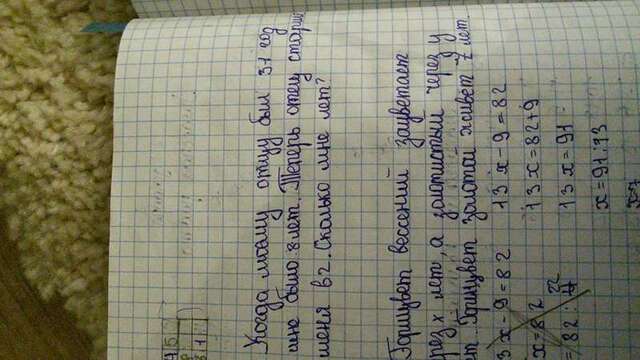 Когда моему отцу был 31 год
мне было 8 лет. Теперь отец старше
меня в 2. Сколько мне лет?
Горицвет вессений зацветает
через x лет, а золотистый через y
лет. Горицвет золотой живёт z лет.
13x-9=82 13x-9=82
x=82 13x=82+9
=82: 13x=91
x=91:13
x=7